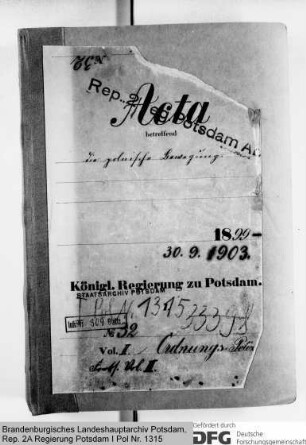 Rep. 2A Reg. Potsdam
Acta
betreffend
die polnische Bewegung.
1899-
30.9.1903.
Königl. Regierung zu Potsdam.
STAATSARCHIV POTSDAM
Pol Nr. 1315
No 32
Vol. I
Ordnungs-Polizei
Vol. II
Brandenburgisches Landeshauptarchiv Potsdam,
Rep. 2A Regierung Potsdam I Pol Nr. 1315
Gefördert durch
DFG Deutsche
Forschungsgemeinschaft